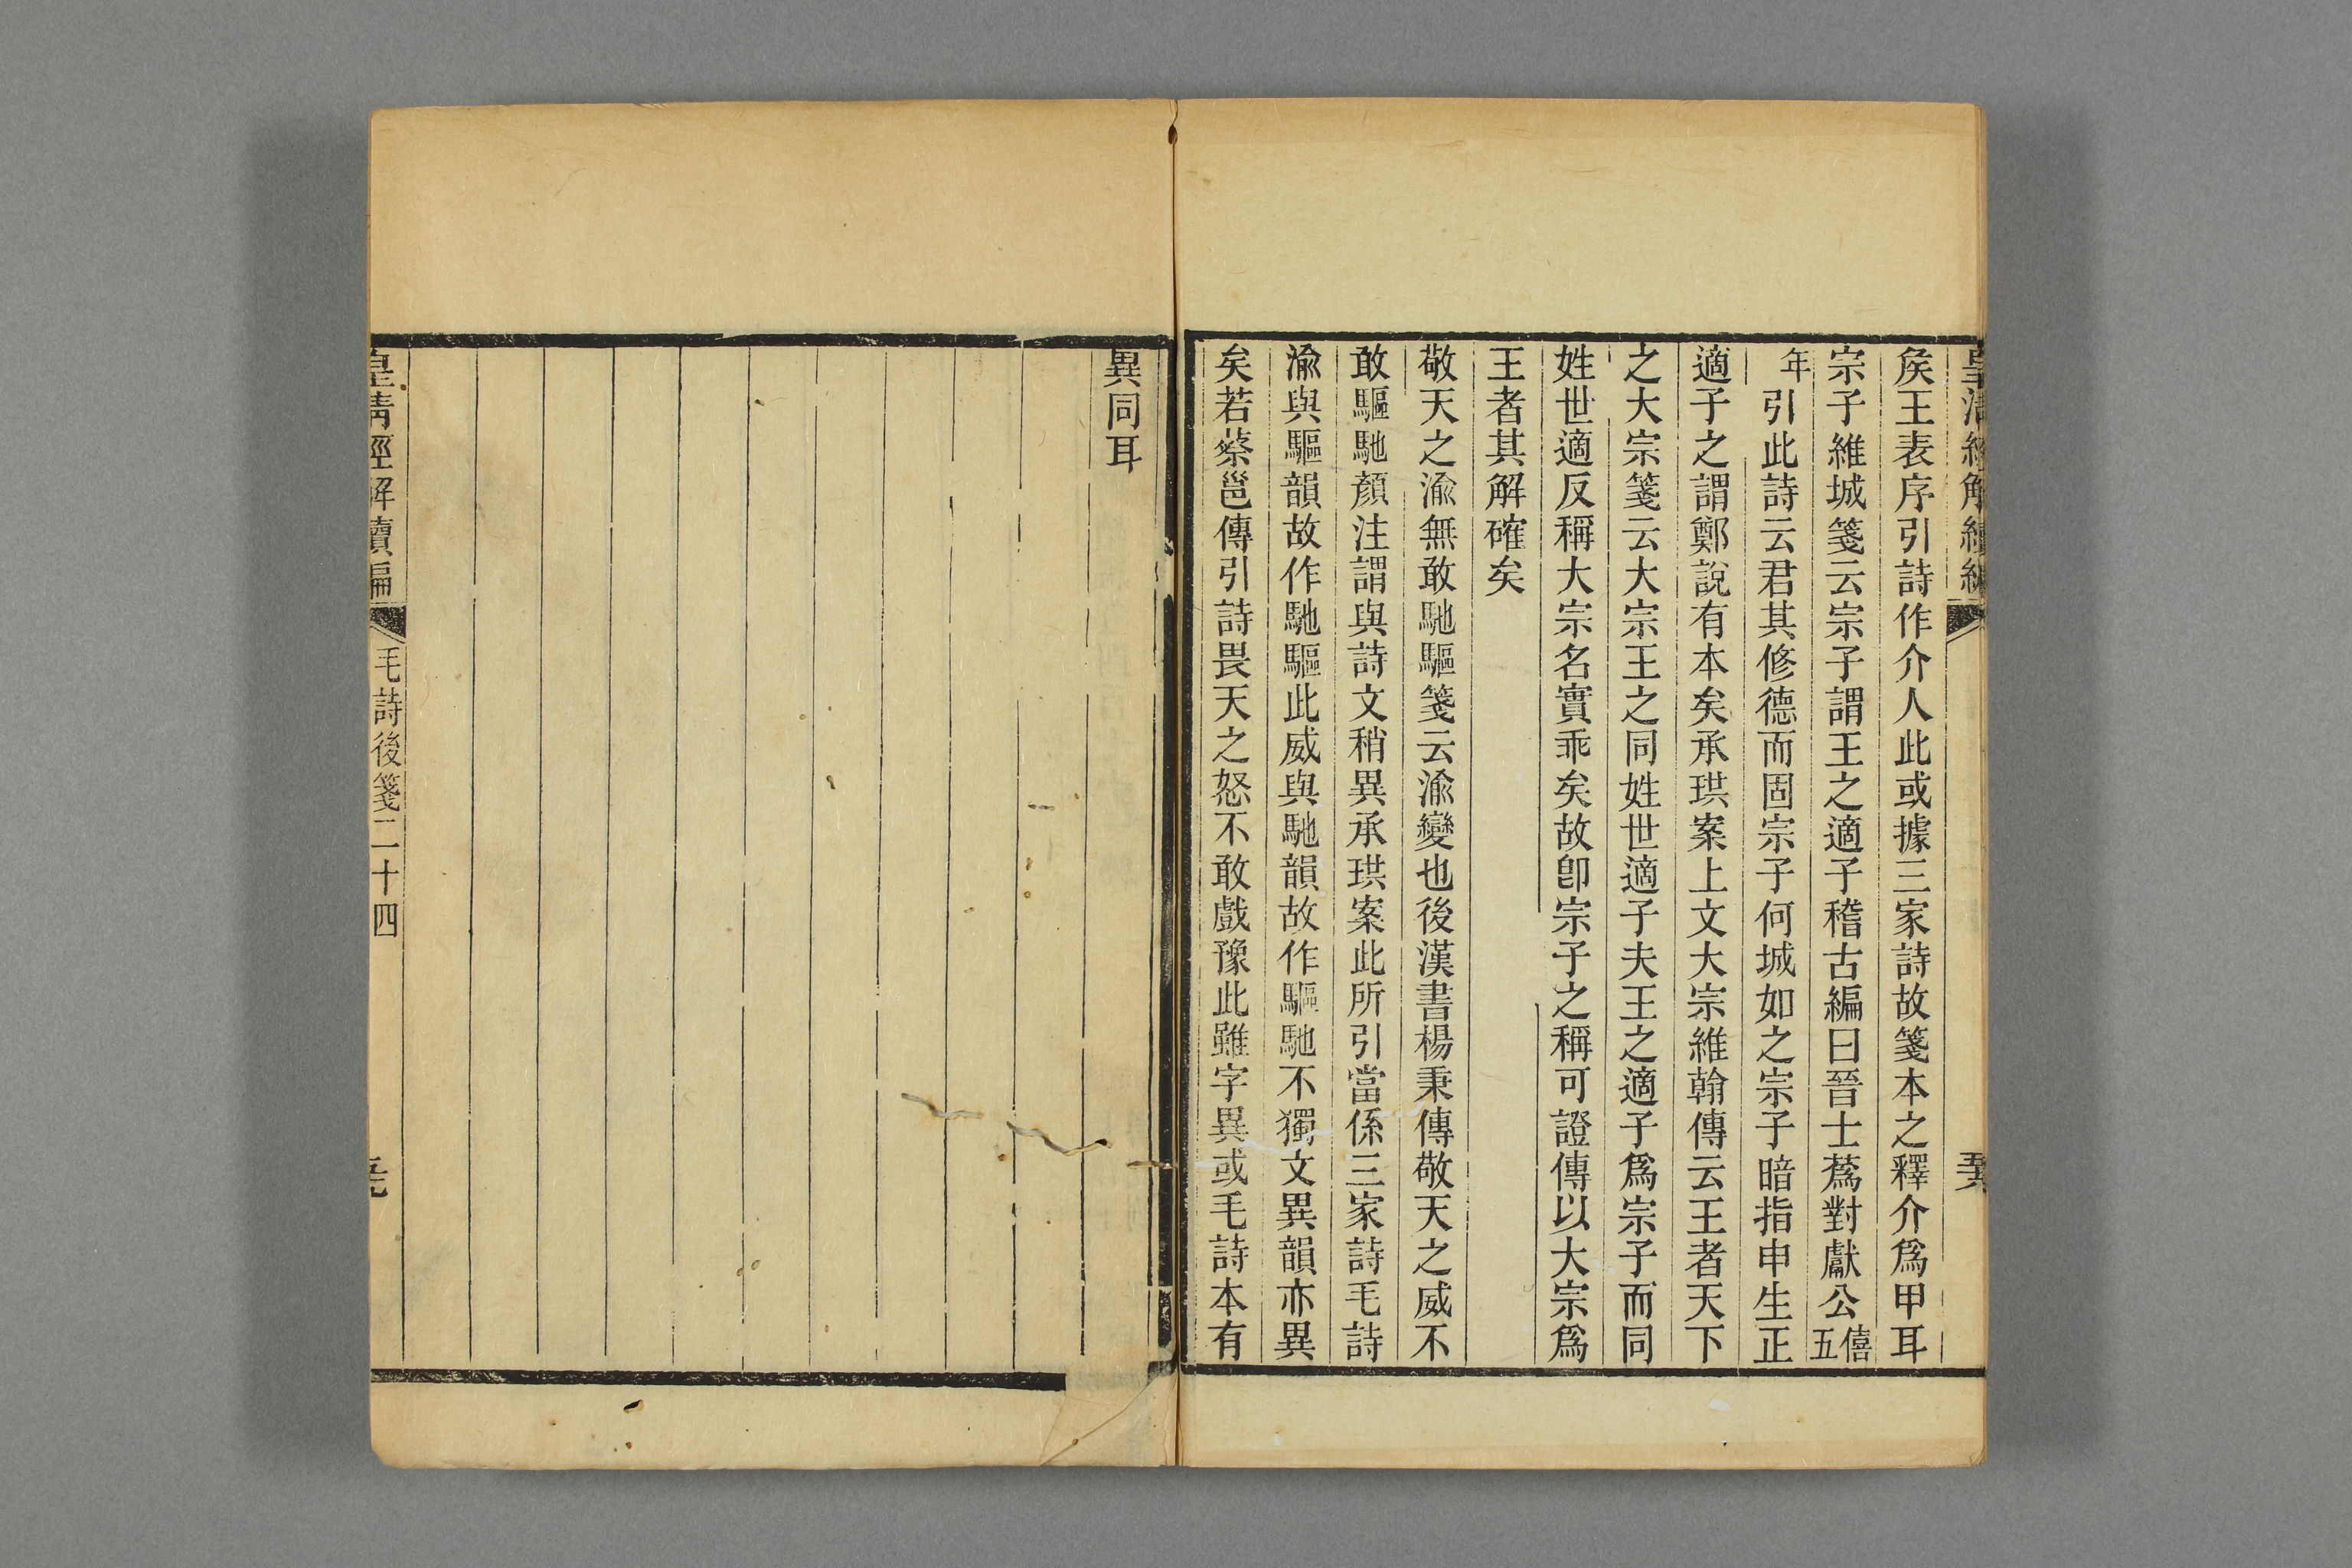 皇清經解續編
侯王表序引詩作介人此或據三家詩故箋本之釋介爲甲耳
宗子維城箋云宗子謂王之適子稽古編曰晉士蔿對獻公僖五
年引此詩云君其修德而固宗子何城如之宗子暗指申生正
適子之謂鄭說有本矣承珙案上文大宗維翰傳云王者天下
之大宗箋云大宗王之同姓世適子夫王之適子爲宗子而同
姓世適反稱大宗名實乖矣故卽宗子之稱可證傳以大宗爲
王者其解確矣
敬天之渝無敢馳驅箋云渝變也後漢書楊秉傳敬天之威不
敢驅馳顏注謂與詩文稍異承珙案此所引當係三家詩毛詩
渝與驅韻故作馳驅此威與馳韻故作驅馳不獨文異韻亦異
矣若蔡邕傳引詩畏天之怒不敢戲豫此雖字異或毛詩本有
異同耳
皇清經解續編
毛詩後箋二十四